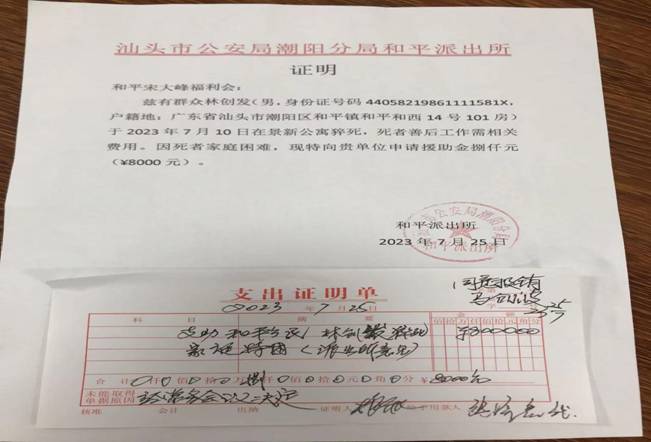 汕头市公安局潮阳分局和平派出所
证明
和平宋大峰福利会：
兹有群众林创发（男，身份证号码 44058219861111581X，
户籍地：广东省汕头市潮阳区和平镇和平和西 14 号 101 房）
于 2023 年 7 月 10 日在景新公寓猝死，死者善后工作需相关
费用。因死者家庭困难，现特向贵单位申请援助金捌仟元
（¥8000 元）。
和平派出所
2023 年 7 月 25 日
同意报销
支出证明单
2023 年 7 月 25 日
科目 摘要 金额
佰拾万仟佰拾元角分
林创发猝死
家庭特困（派出所意见）
合计 仟 佰 拾 万 捌 仟 佰 拾 元 角 分 ¥8000元
未能取得
单据原因
核准 会计 出纳 证明人 领款人